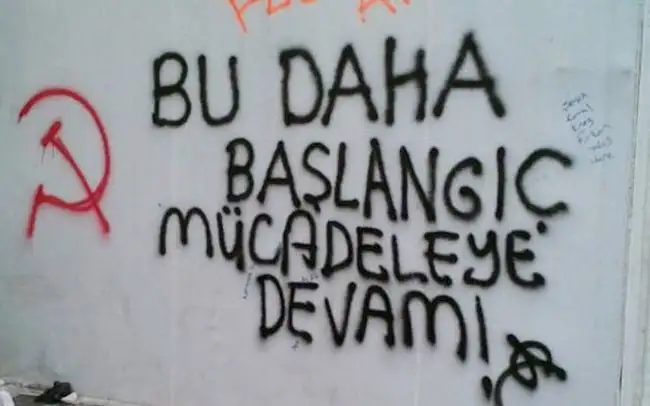 BU DAHA
BAŞLANGIÇ
MÜCADELEYE
DEVAM!